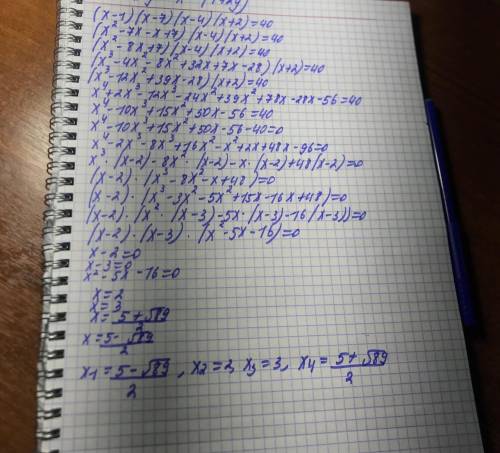 (x-1)(x-7)(x-4)(x+2)=40
(x²-7x-x+7)(x-4)(x+2)=40
(x²-8x+7)(x-4)(x+2)=40
(x³-4x²-8x²+32x+7x-28)(x+2)=40
(x³-12x²+39x-28)(x+2)=40
x⁴+2x³-12x³-24x²+39x²+78x-28x-56=40
x⁴-10x³+15x²+50x-56=40
x⁴-10x³+15x²+50x-56-40=0
x⁴-2x³-8x³+16x²-x²+2x+48x-96=0
x³·(x-2)-8x²·(x-2)-x·(x-2)+48(x-2)=0
(x-2)·(x³-8x²-x+48)=0
(x-2)·(x³-3x²-5x²+15x-16x+48)=0
(x-2)·(x²·(x-3)-5x·(x-3)-16(x-3))=0
(x-2)·(x-3)·(x²-5x-16)=0
x-2=0
x-3=0
x²-5x-16=0
x=2
x=3
x=5+√89/2
x=5-√89/2
x₁=5-√89/2, x₂=2, x₃=3, x₄=5+√89/2